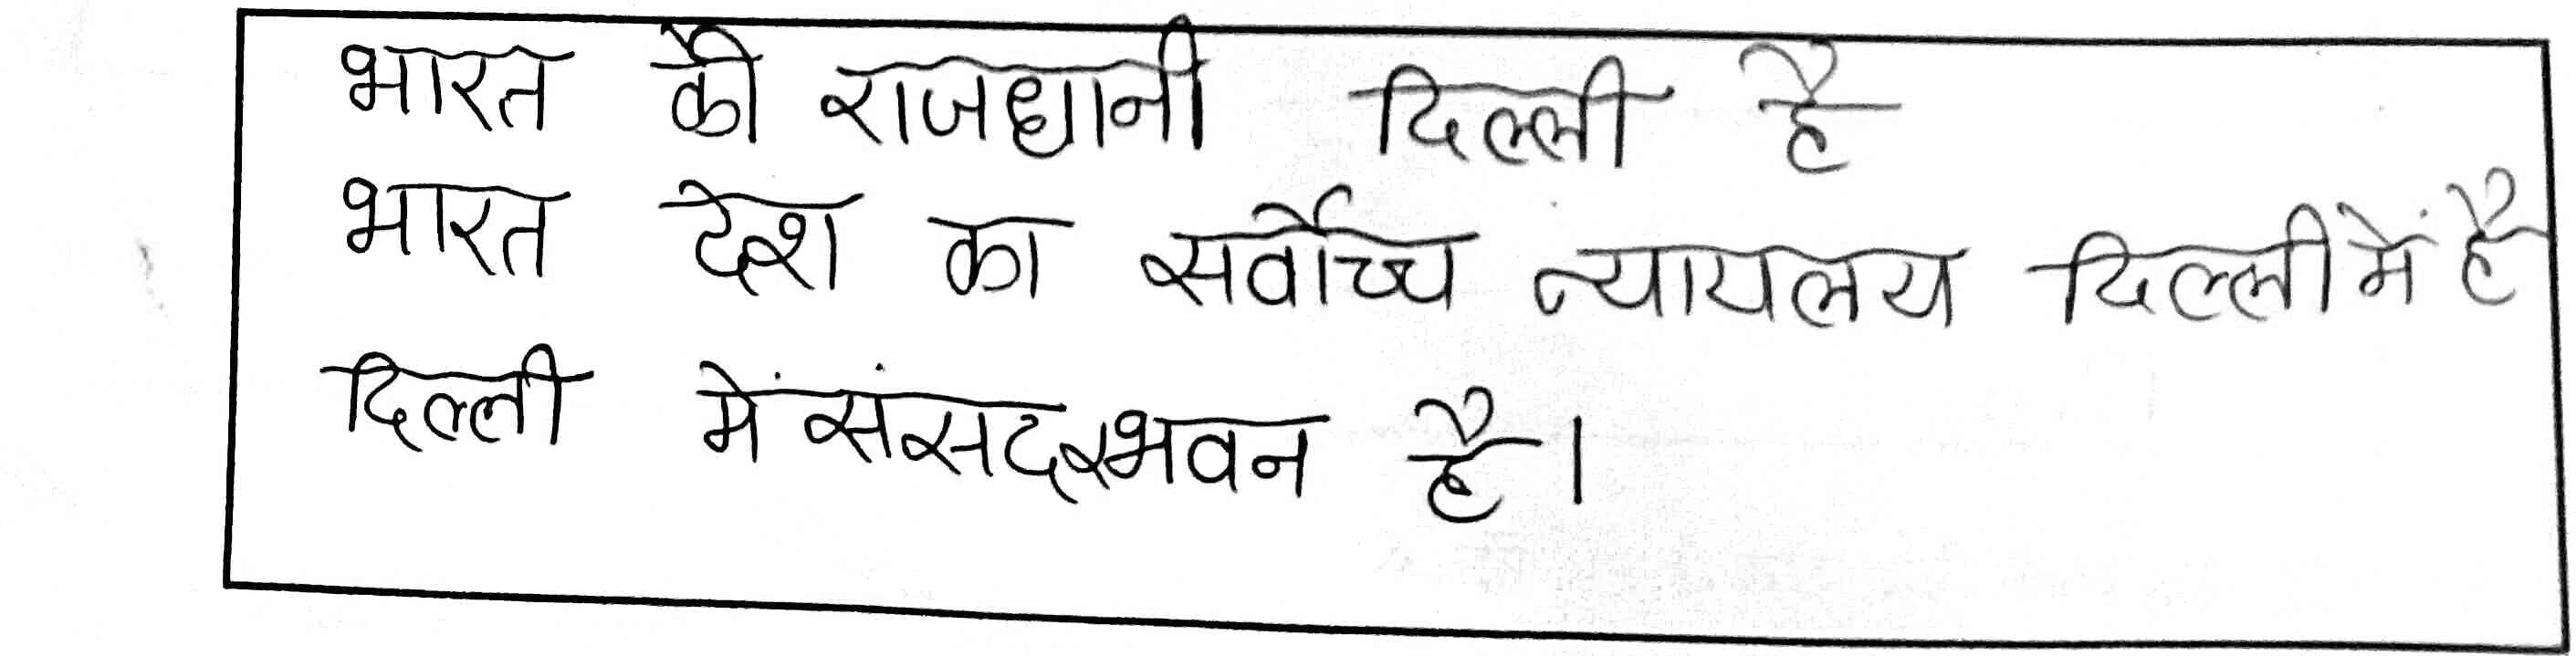 भारत की राजधानी दिल्ली है
भारत देश का सर्वोच्च न्यायलय दिल्ली में है
दिल्ली में संसद भवन है।